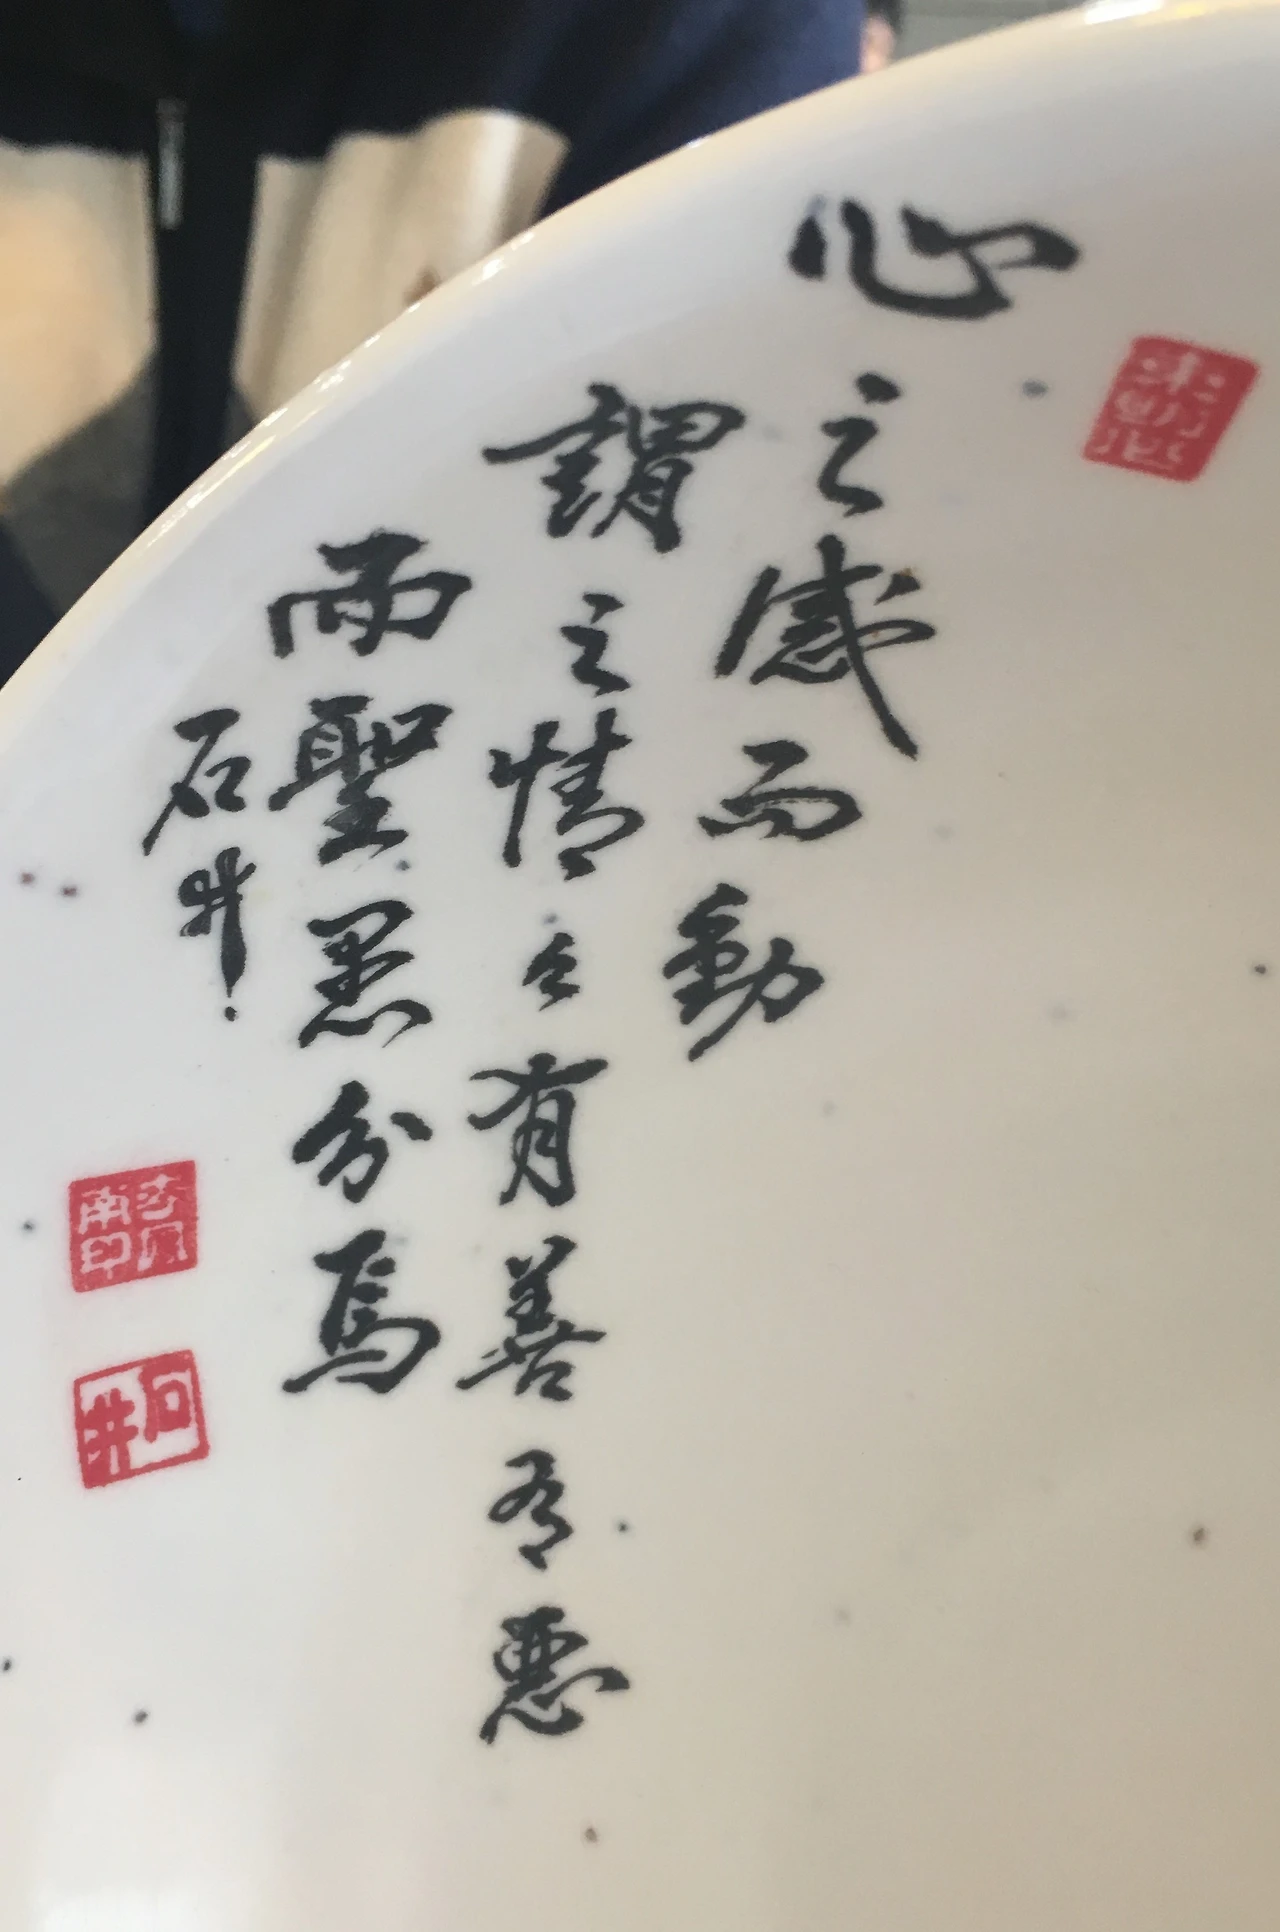 心之感而動
謂之情々有善有惡
而聖愚分焉
石井
石井